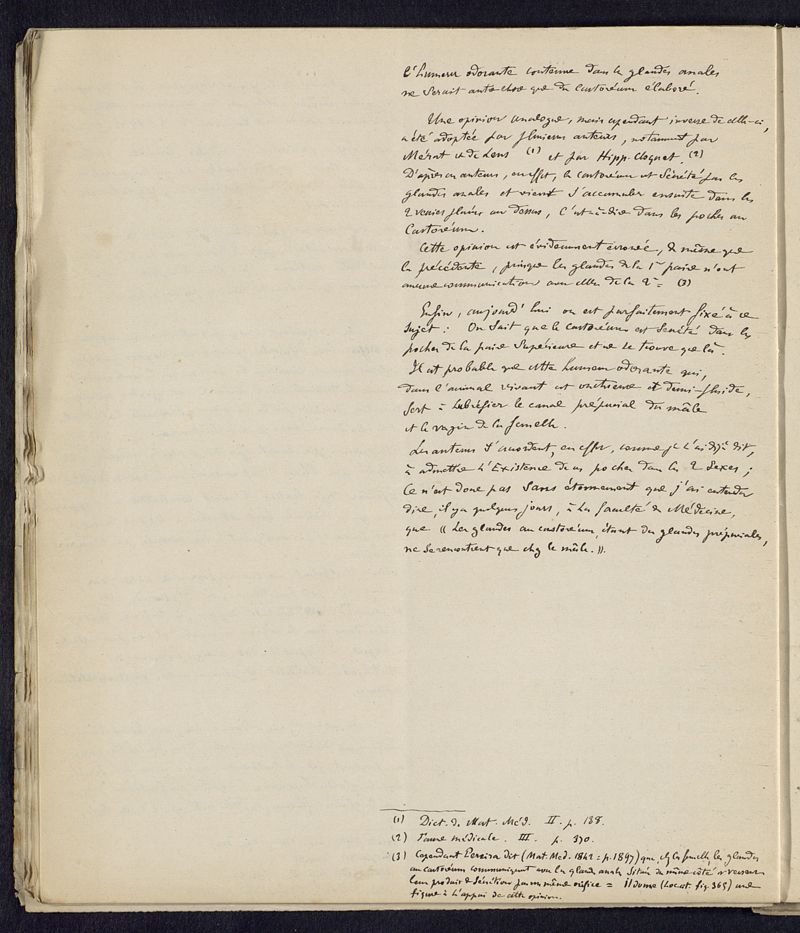 l'humeur odorante contenue dans les glandes anales
ne serait autre chose que du Castoréum élaboré.
Une opinion analogue, mais cependant inverse de celle-ci,
a été adoptée par plusieurs auteurs, notamment par
Mérat et de Lens (1) et par Hipp. Cloquet. (2)
D'après ces auteurs, en effet, le castoréum est sécrété par les
glandes anales et vient s'accumuler ensuite dans les
2 vessies placées au dessus, c'est-à-dire dans les poches au
Castoréum.
Cette opinion est évidemment erronée, de même que
la précédente, puisque les glandes de la 1re paire n'ont
aucune communication avec celles de la 2e = (3)
Enfin, aujourd'hui on est parfaitement fixé à ce
sujet : On sait que le castoréum est sécrété dans les
poches de la paire supérieure et ne se trouve que là.
Il est probable que cette humeur odorante qui,
dans l'animal vivant est onctueuse et demi-fluide,
sert à lubréfier le canal préputial du mâle
et le vagin de la femelle.
Les auteurs s'accordent, en effet, comme je l'ai déjà dit,
à admettre l'Existence de ces poches dans les 2 Sexes ;
Ce n'est donc pas sans étonnement que j'ai entendu
dire, il y a quelques jours, à la faculté de Médecine,
que « Les glandes au castoréum, étant des glandes préputiales,
ne se rencontrent que chez le mâle. ».
(1) Dict. de Mat. Méd. II. p. 138.
(2) Faune médicale. III. p. 370.
(3) Cependant Pereira dit (Mat. Med. 1842 = p. 1897) que chez la femelle les glandes
au castoréum communiquent avec les glandes anales situées du même côté et versent
leur produit de sécrétion par un même orifice = Il donne (Loc. cit. fig. 365) une
figure à l'appui de cette opinion.